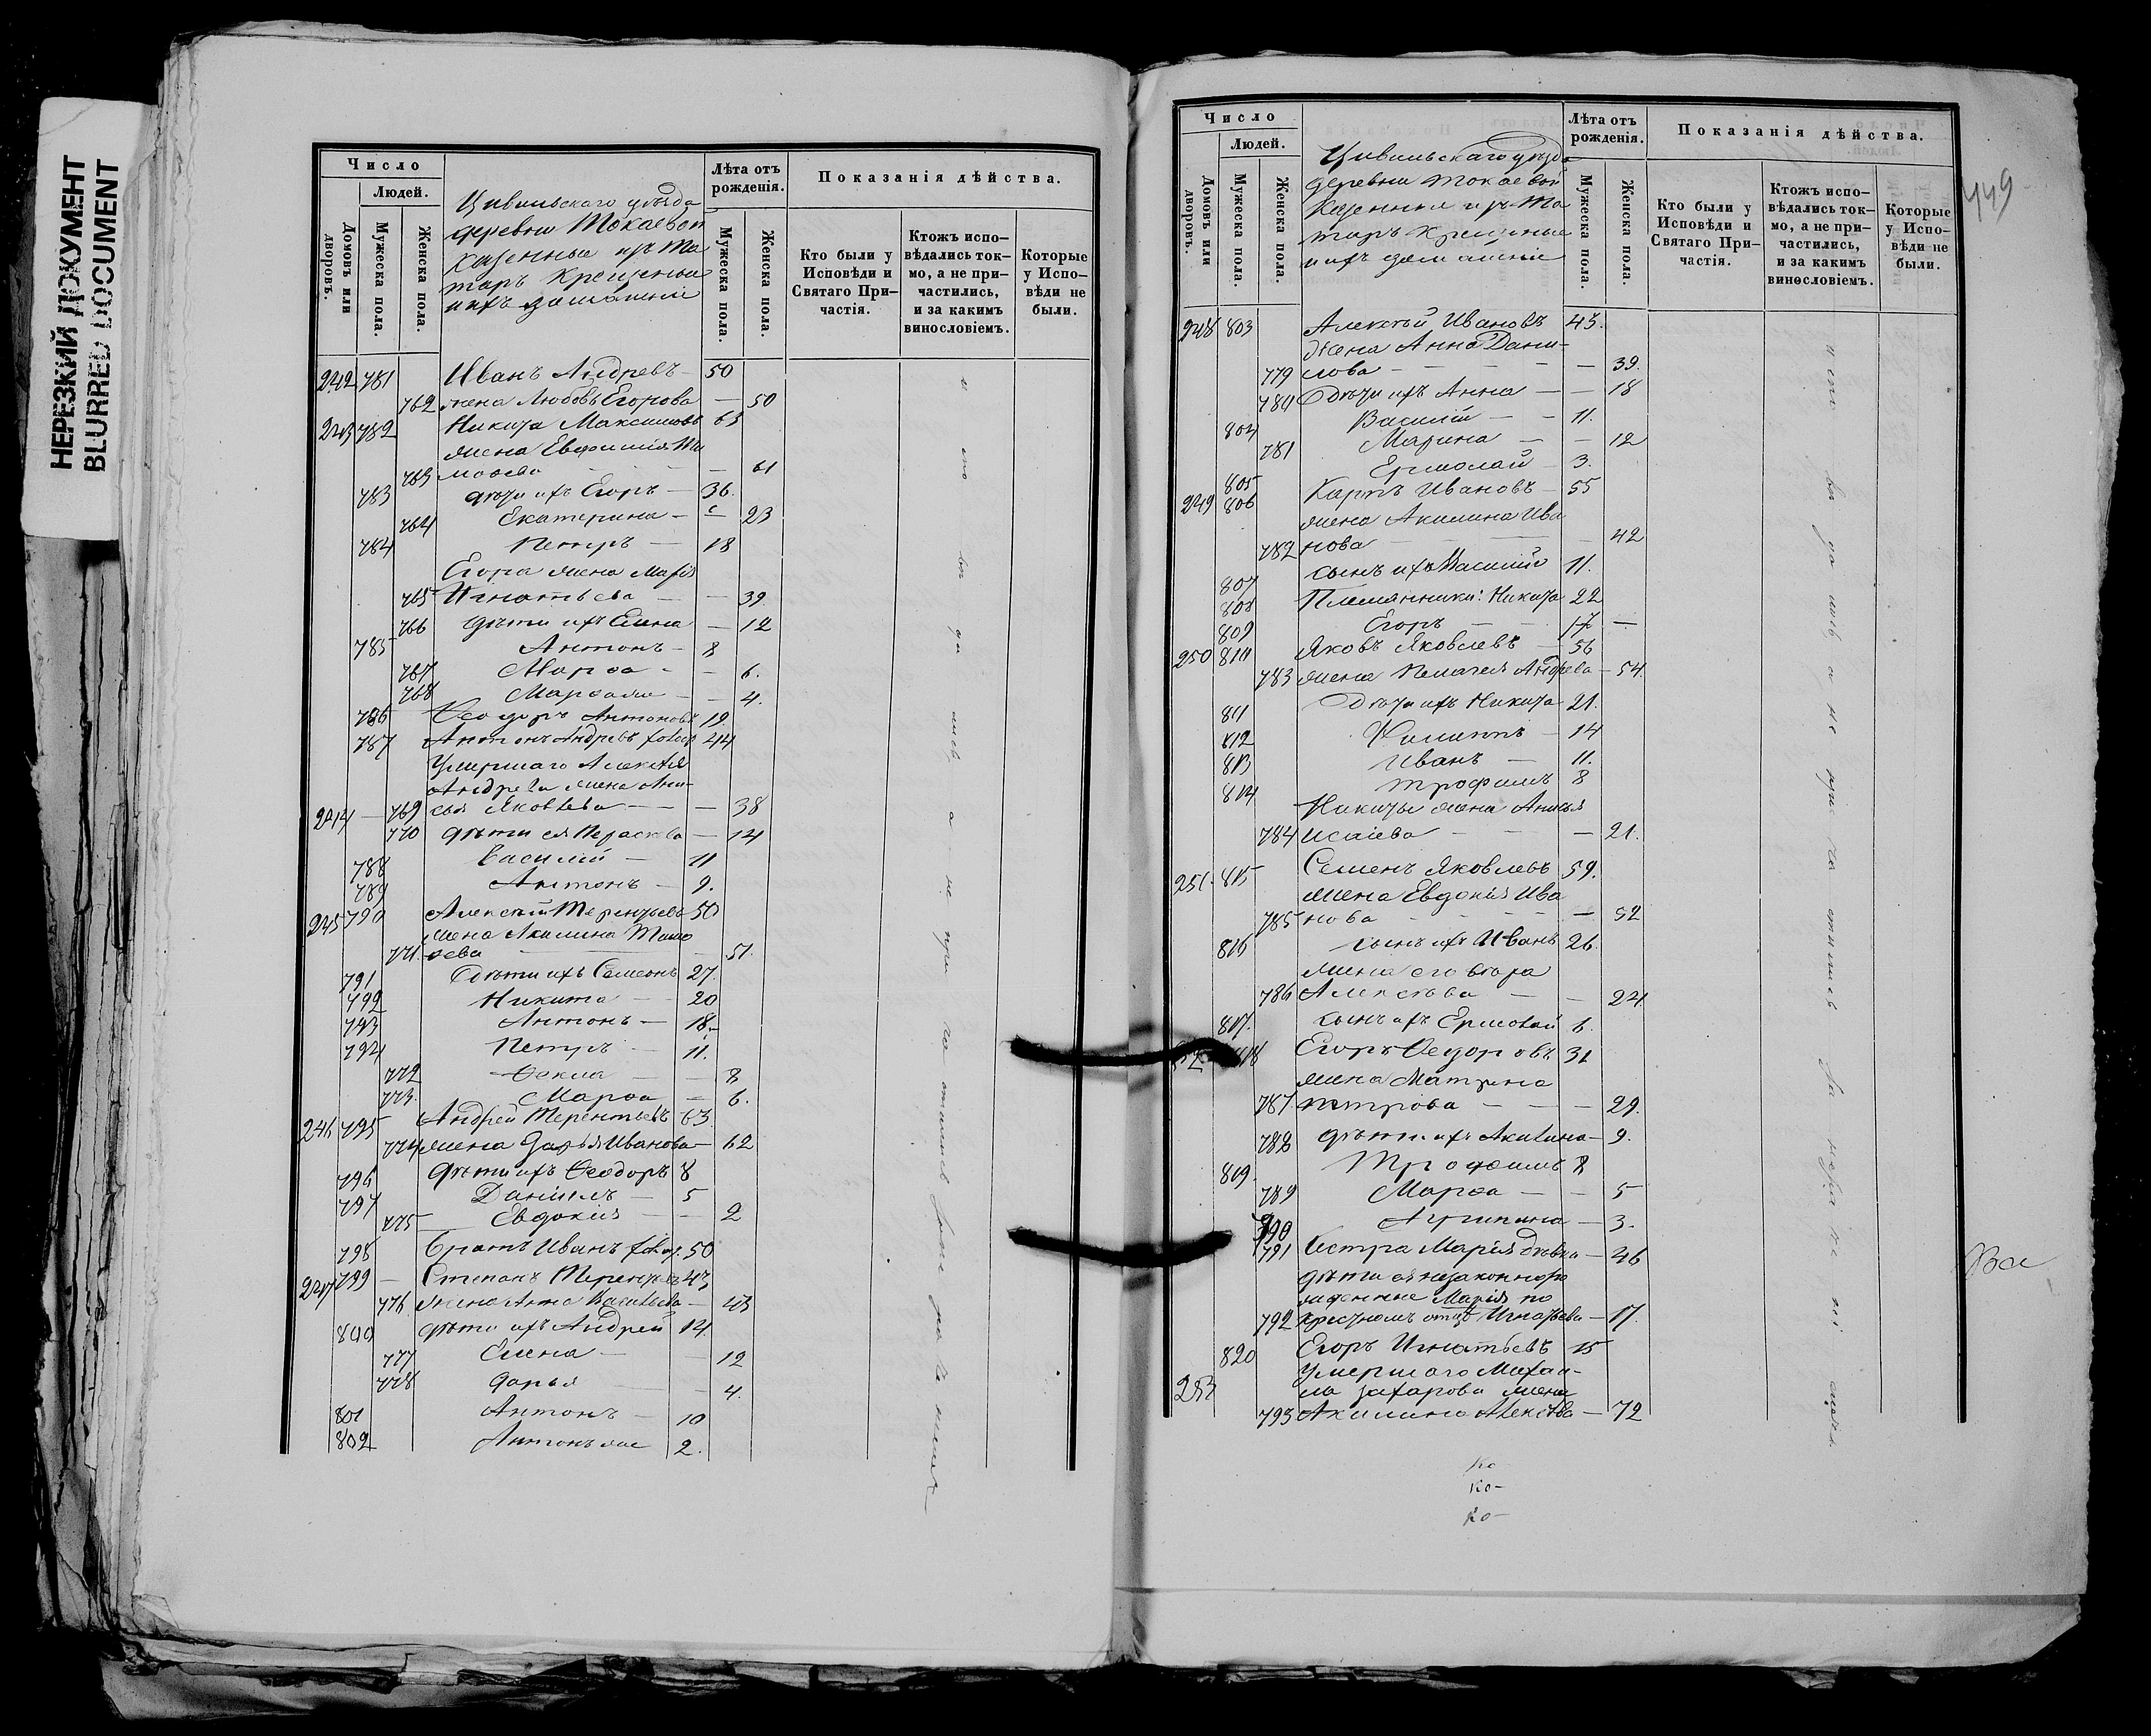 НЕРЕЗКИЙ ДОКУМЕНТ
BLURRED DOCUMENT
Число
Людей.
Домовъ или дворовъ.
Мужеска пола.
Женска пола.
Цивильскаго уѣзда
деревни Токаевой
казенныя изъ Та
таръ крещеныя
и ихъ домашніе
Лѣта отъ рожденія.
Мужеска пола.
Женска пола.
Показанія дѣйства.
Кто были у Исповѣди и Святаго Причастія.
Ктожъ исповѣдались токмо, а не причастились, и за какимъ винословіемъ.
Которые у Исповѣди не были.
242 781 Иванъ Андревъ 50
762 жена Любовь Егорова — 50
243 782 Никита Максимовъ 65
жена Евфимія Ти
763 моѳеева — 61
783 дѣти ихъ Егоръ — 36.
764 Екатерина — 23
784 Петръ — 18
Егора жена Марія
765 Игнатьева — 39
766 дѣти ихъ Елена — 12
785 Антонъ — 8
767 Марѳа — 6.
768 Марѳа же — 4.
786 Ѳеодоръ Антоновъ 19.
787 Антонъ Андревъ холост 44
Умершаго Алексѣя
Андрева жена Ани-
244 — 769 сья Яковлева — 38
770 дѣти ея Параскева — 14
788 Василій — 11
789 Антонъ — 9.
245 790 Алексѣй Терентьевъ 50
жена Акилина Тимо
771 ѳеева — 51.
791 Дѣти ихъ Семенъ 27.
792 Никита — 20
793 Антонъ — 18.
794 Петръ — 11.
772 Ѳекла — 8
773. Марѳа — 6.
246 795 Андрей Терентьевъ 63
774 жена Дарья Иванова — 62
796 дѣти ихъ Ѳеодоръ 8
797 Даніилъ — 5
775 Евдокія — 2
798 братъ Иванъ хол. 50
247 799 — Степанъ Терентьевъ 43
776 жена Анна Васильева — 43
800 дѣти ихъ Андрей 14
777 Елена — 12
778 Дарья — 4.
801 Антонъ — 10
802 Антонъ же 2.
449
Число
Людей.
Домовъ или дворовъ.
Мужеска пола.
Женска пола.
Цивильскаго уѣзда
деревни Токаевой
Казенныя изъ Та
таръ крещеные
и ихъ домашніе
Лѣта отъ рожденія.
Мужеска пола.
Женска пола.
Показанія дѣйства.
Кто были у Исповѣди и Святаго Причастія.
Ктожъ исповѣдались токмо, а не причастились, и за какимъ винословіемъ.
Которые у Исповѣди не были.
248 803 Алексѣй Ивановъ 43.
Жена Анна Дани-
779 лова — 39.
780 Дѣти ихъ Анна — 18
804 Василій — 11.
781 Марина — 12
805 Ермолай 3.
249 806 Карпъ Ивановъ — 55
жена Акилина Ива
782 нова — 42
807 сынъ ихъ Василій 11.
808 Племянники: Никита 22
809 Егоръ 17 —
250 810 Яковъ Яковлевъ — 56
783 жена Пелагея Андрева — 54.
811 Дѣти ихъ Никита 21.
812 Филиппъ — 14
813 Иванъ — 11.
814 Трофимъ 8
Никиты жена Анисья
784 Исаіева — 21.
251. 815 Семенъ Яковлевъ 59.
жена Евдокія Ива
785 нова — 52
816 сынъ ихъ Иванъ 26.
жена его
786 Алексѣева — 24
817. сынъ ихъ Ермолай 6.
818 Егоръ Ѳедоровъ 31
жена Матрена
787 Петрова — 29.
788 дѣти ихъ Акилина — 9.
819. Трофимъ 8
789 Марѳа — 5
790 Агрипина — 3.
791 Сестра Марія дѣвка — 46
дѣти ея незаконноро
жденные Марія по
792 крестномъ отцѣ Игнатьева — 17.
820 Егоръ Игнатьевъ 15
Умершаго Михаи-
253 ла Захарова жена
793 Акилина Алексѣева — 72
Ко-
Ко-
Ко-